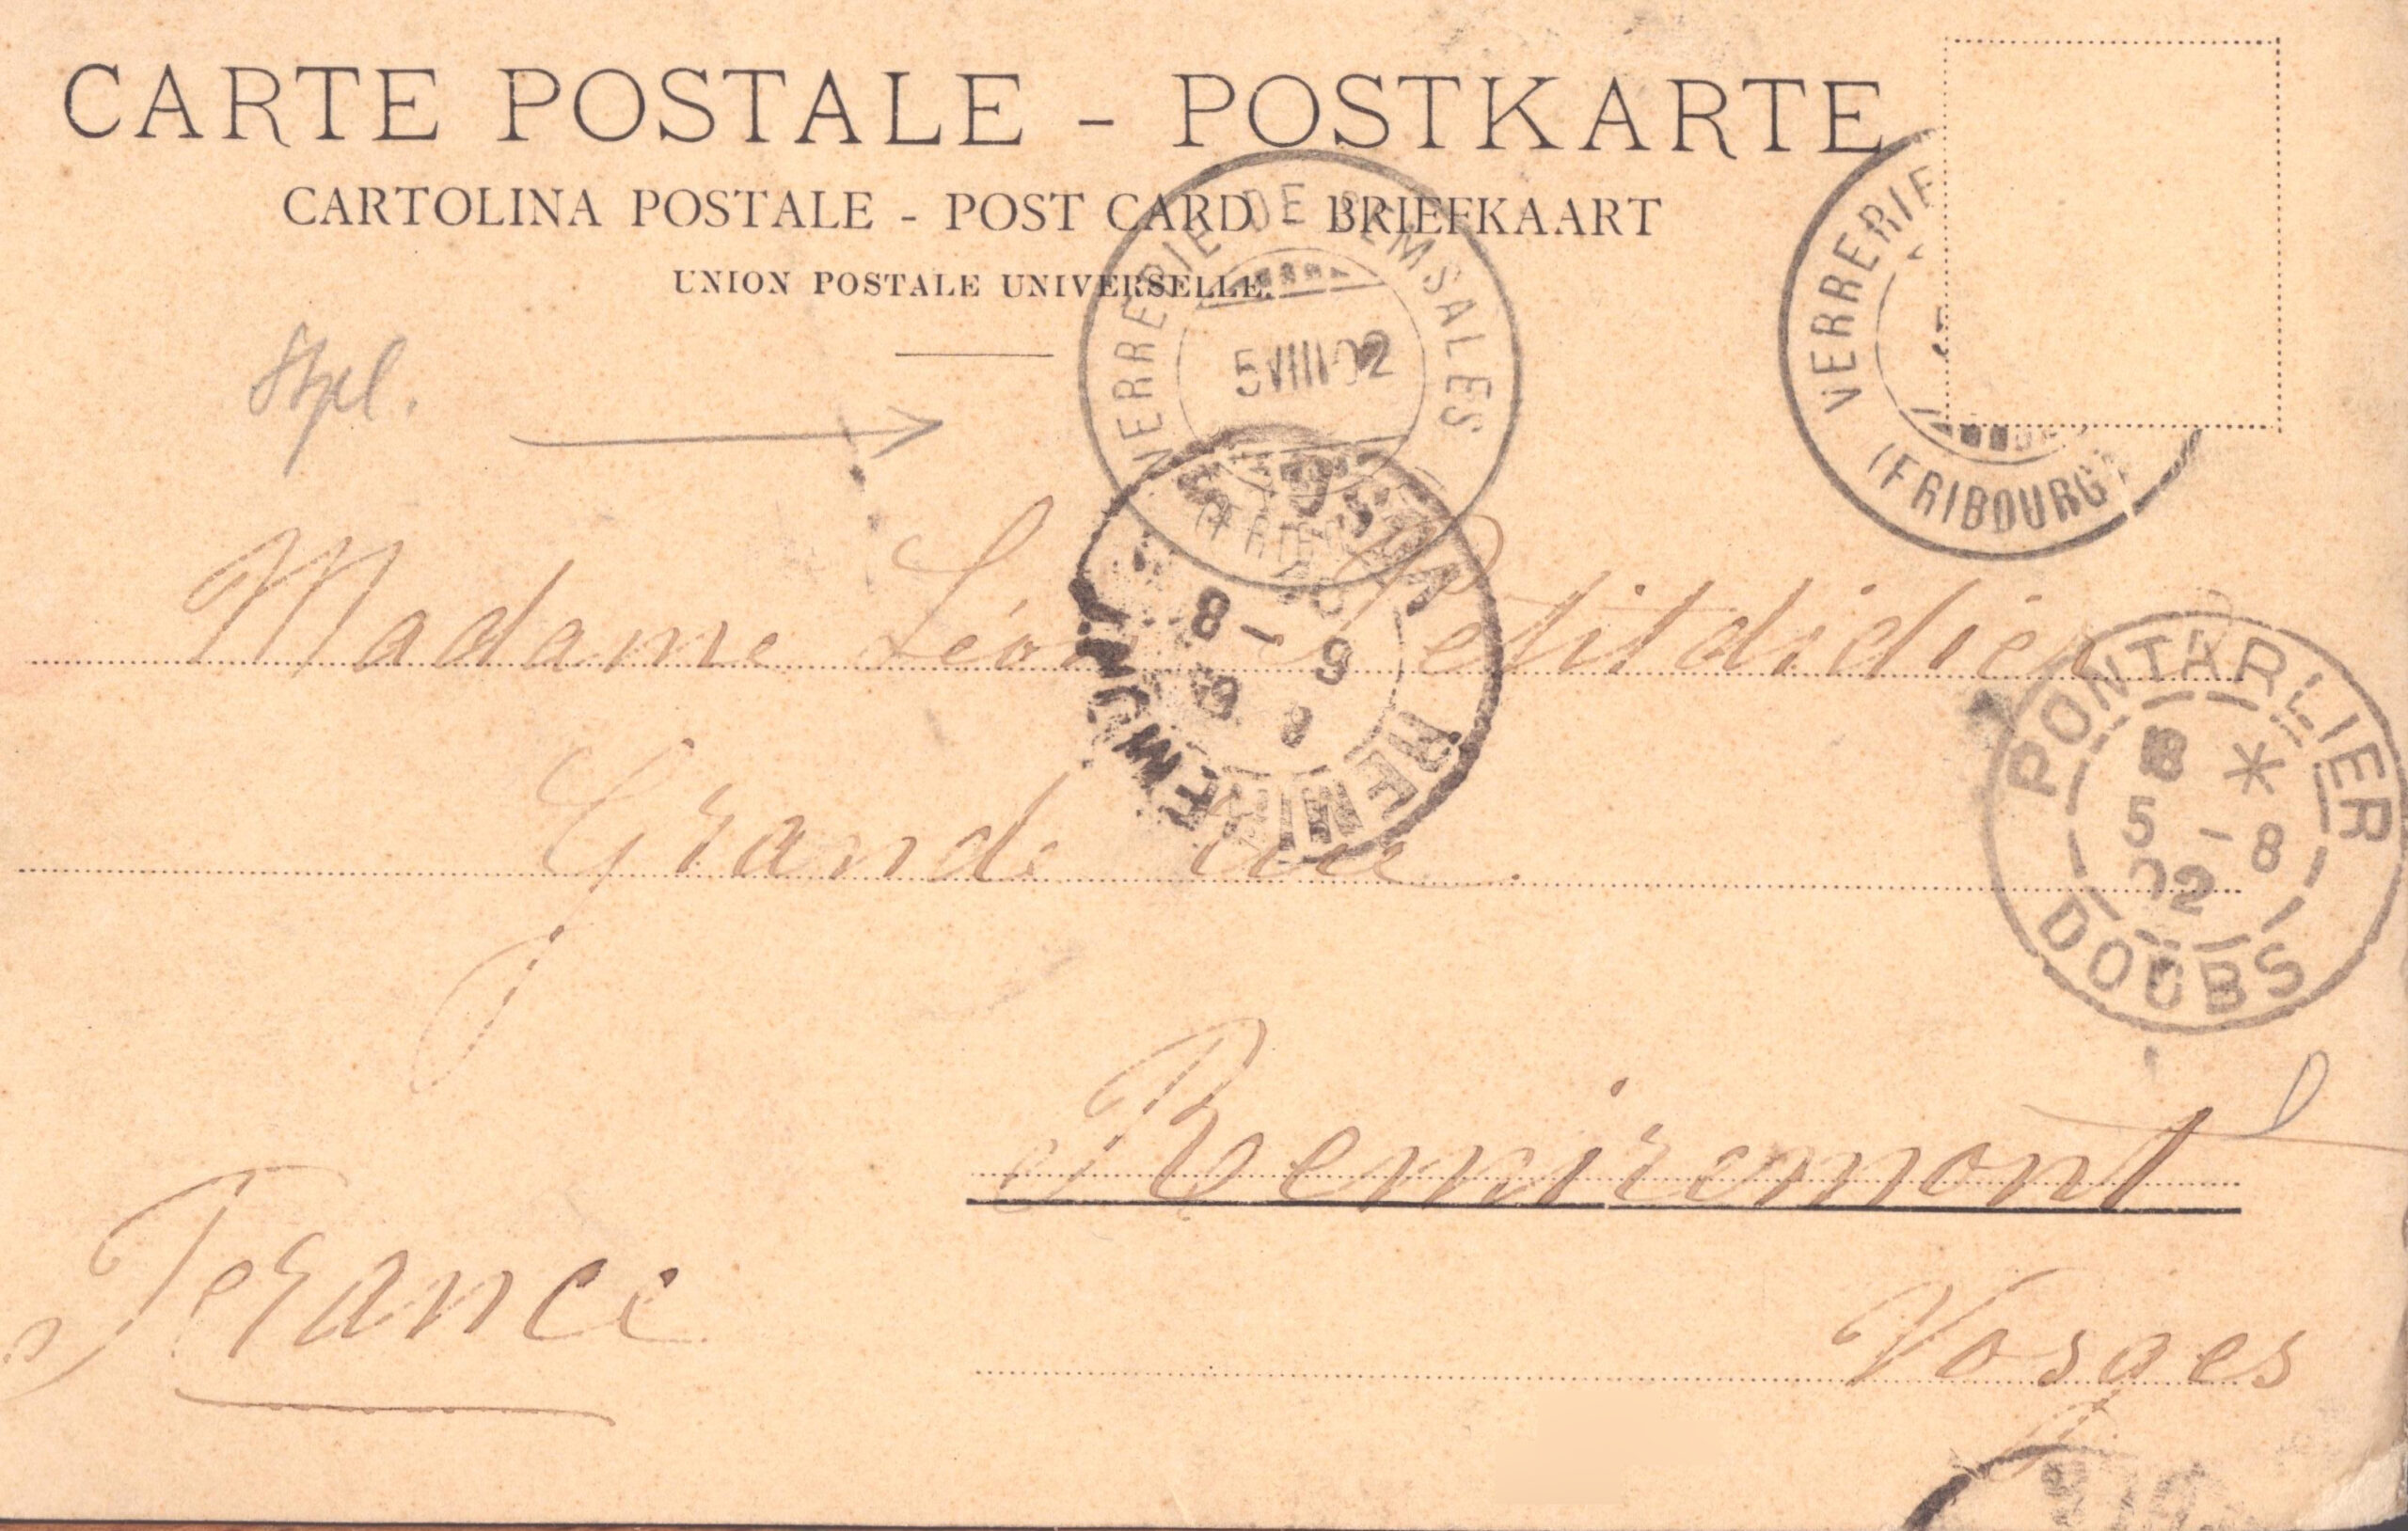 CARTE POSTALE - POSTKARTE
CARTOLINA POSTALE - POST CARD - BRIEFKAART
UNION POSTALE UNIVERSELLE.
VERRERIE DE SEMSALES
5 VIII 02
VERRERIE
(FRIBOURG)
Stpl.
Madame Léon Petitdidier
8 - 9
PONTARLIER
8 *
5 - 8
02
DOUBS
Grande rue
Remiremont
France
Vosges